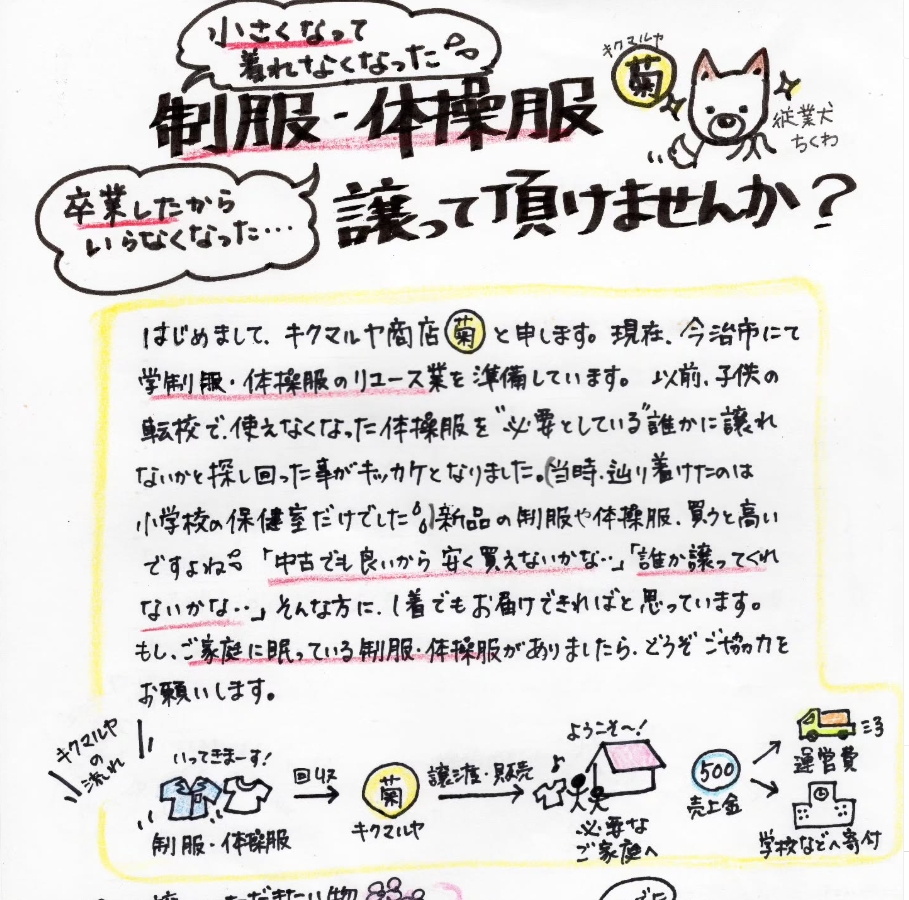 小さくなって
着れなくなった
キクマルヤ
菊
制服・体操服
従業犬
ちくわ
卒業したから
いらなくなった…
譲って頂けませんか？
はじめまして、キクマルヤ商店 菊 と申します。現在、今治市にて
学制服・体操服のリユース業を準備しています。以前、子供の
転校で、使えなくなった体操服を“必要としている”誰かに譲れ
ないかと探し回った事がキッカケとなりました。(当時、辿り着けたのは
小学校の保健室だけでした。)新品の制服や体操服、買うと高い
ですよね。「中古でも良いから安く買えないかな…」「誰か譲ってくれ
ないかな…」そんな方に、1着でもお届けできればと思っています。
もし、ご家庭に眠っている制服・体操服がありましたら、どうぞご協力を
お願いします。
キクマルヤ
の
流れ
いってきまーす！
制服・体操服
回収
菊
キクマルヤ
譲渡・販売
ようこそ〜！
必要な
ご家庭へ
500
売上金
運営費
学校などへ寄付